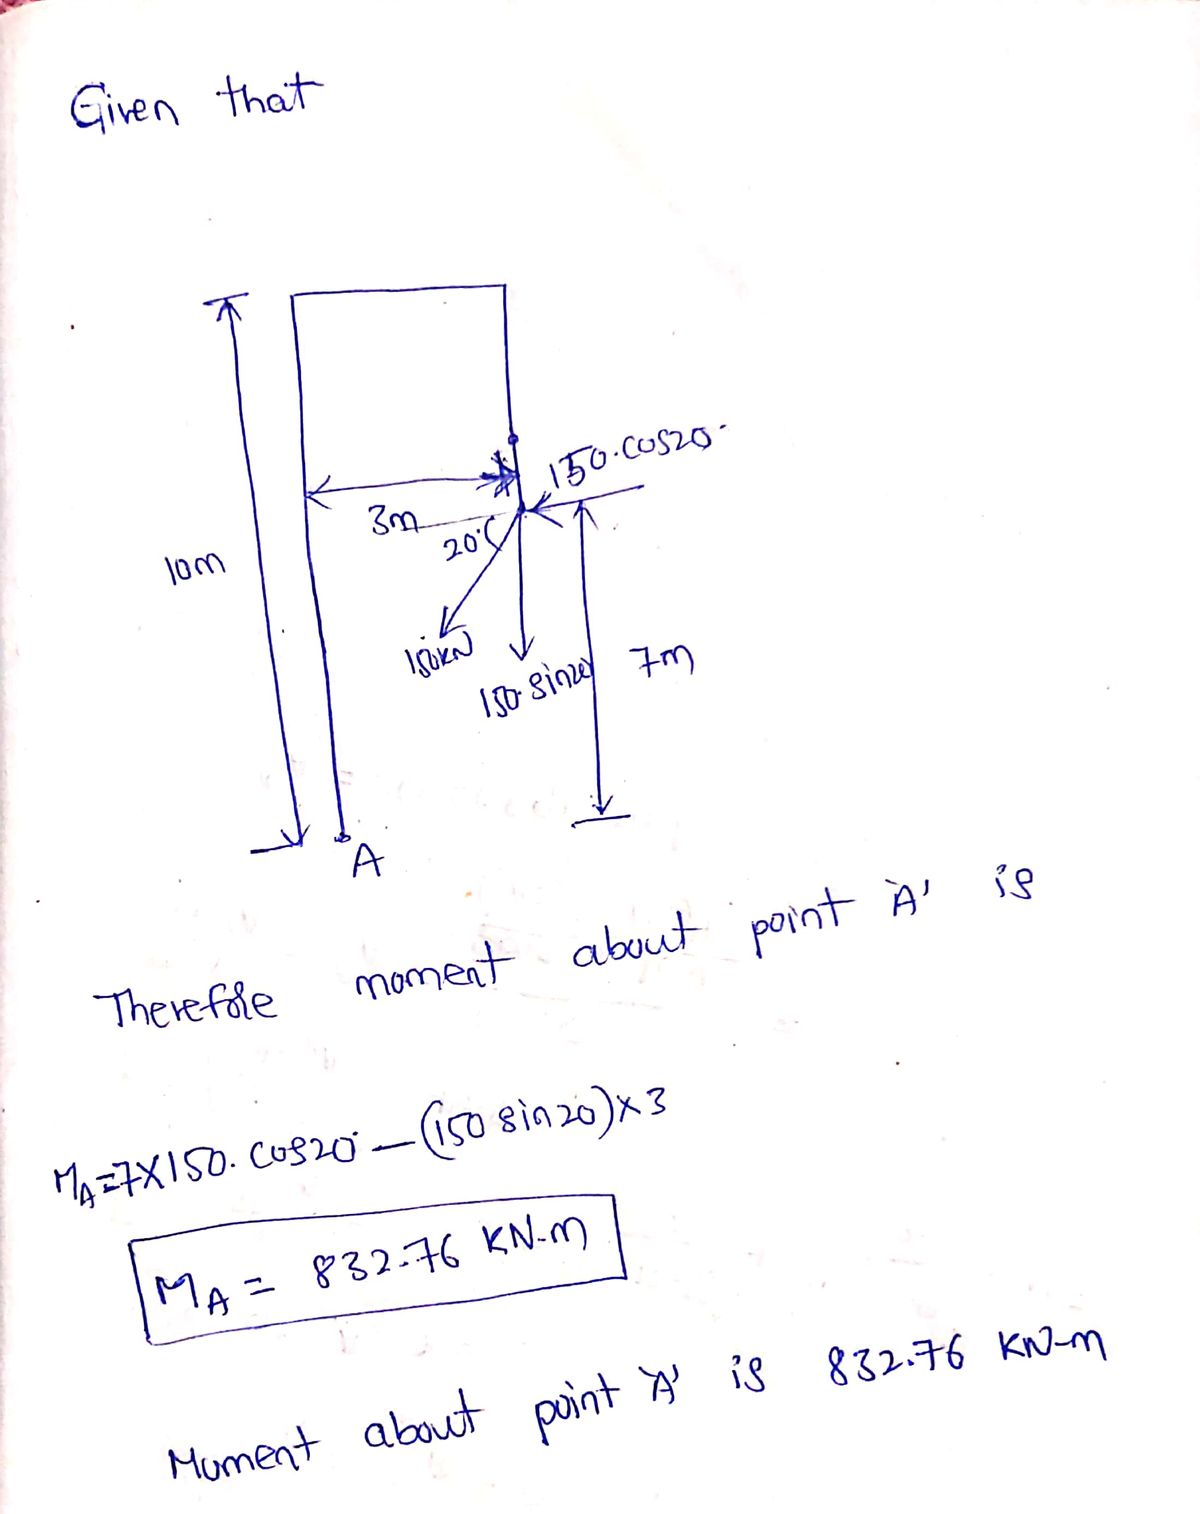 Given that
150.cos20°
3m
20°
10m
150KN
150.sin20
7m
A
Therefore moment about point 'A' is
MA=7X150.cos20° – (150 sin20)x3
MA = 832.76 KN-m
Moment about point 'A' is 832.76 KN-m